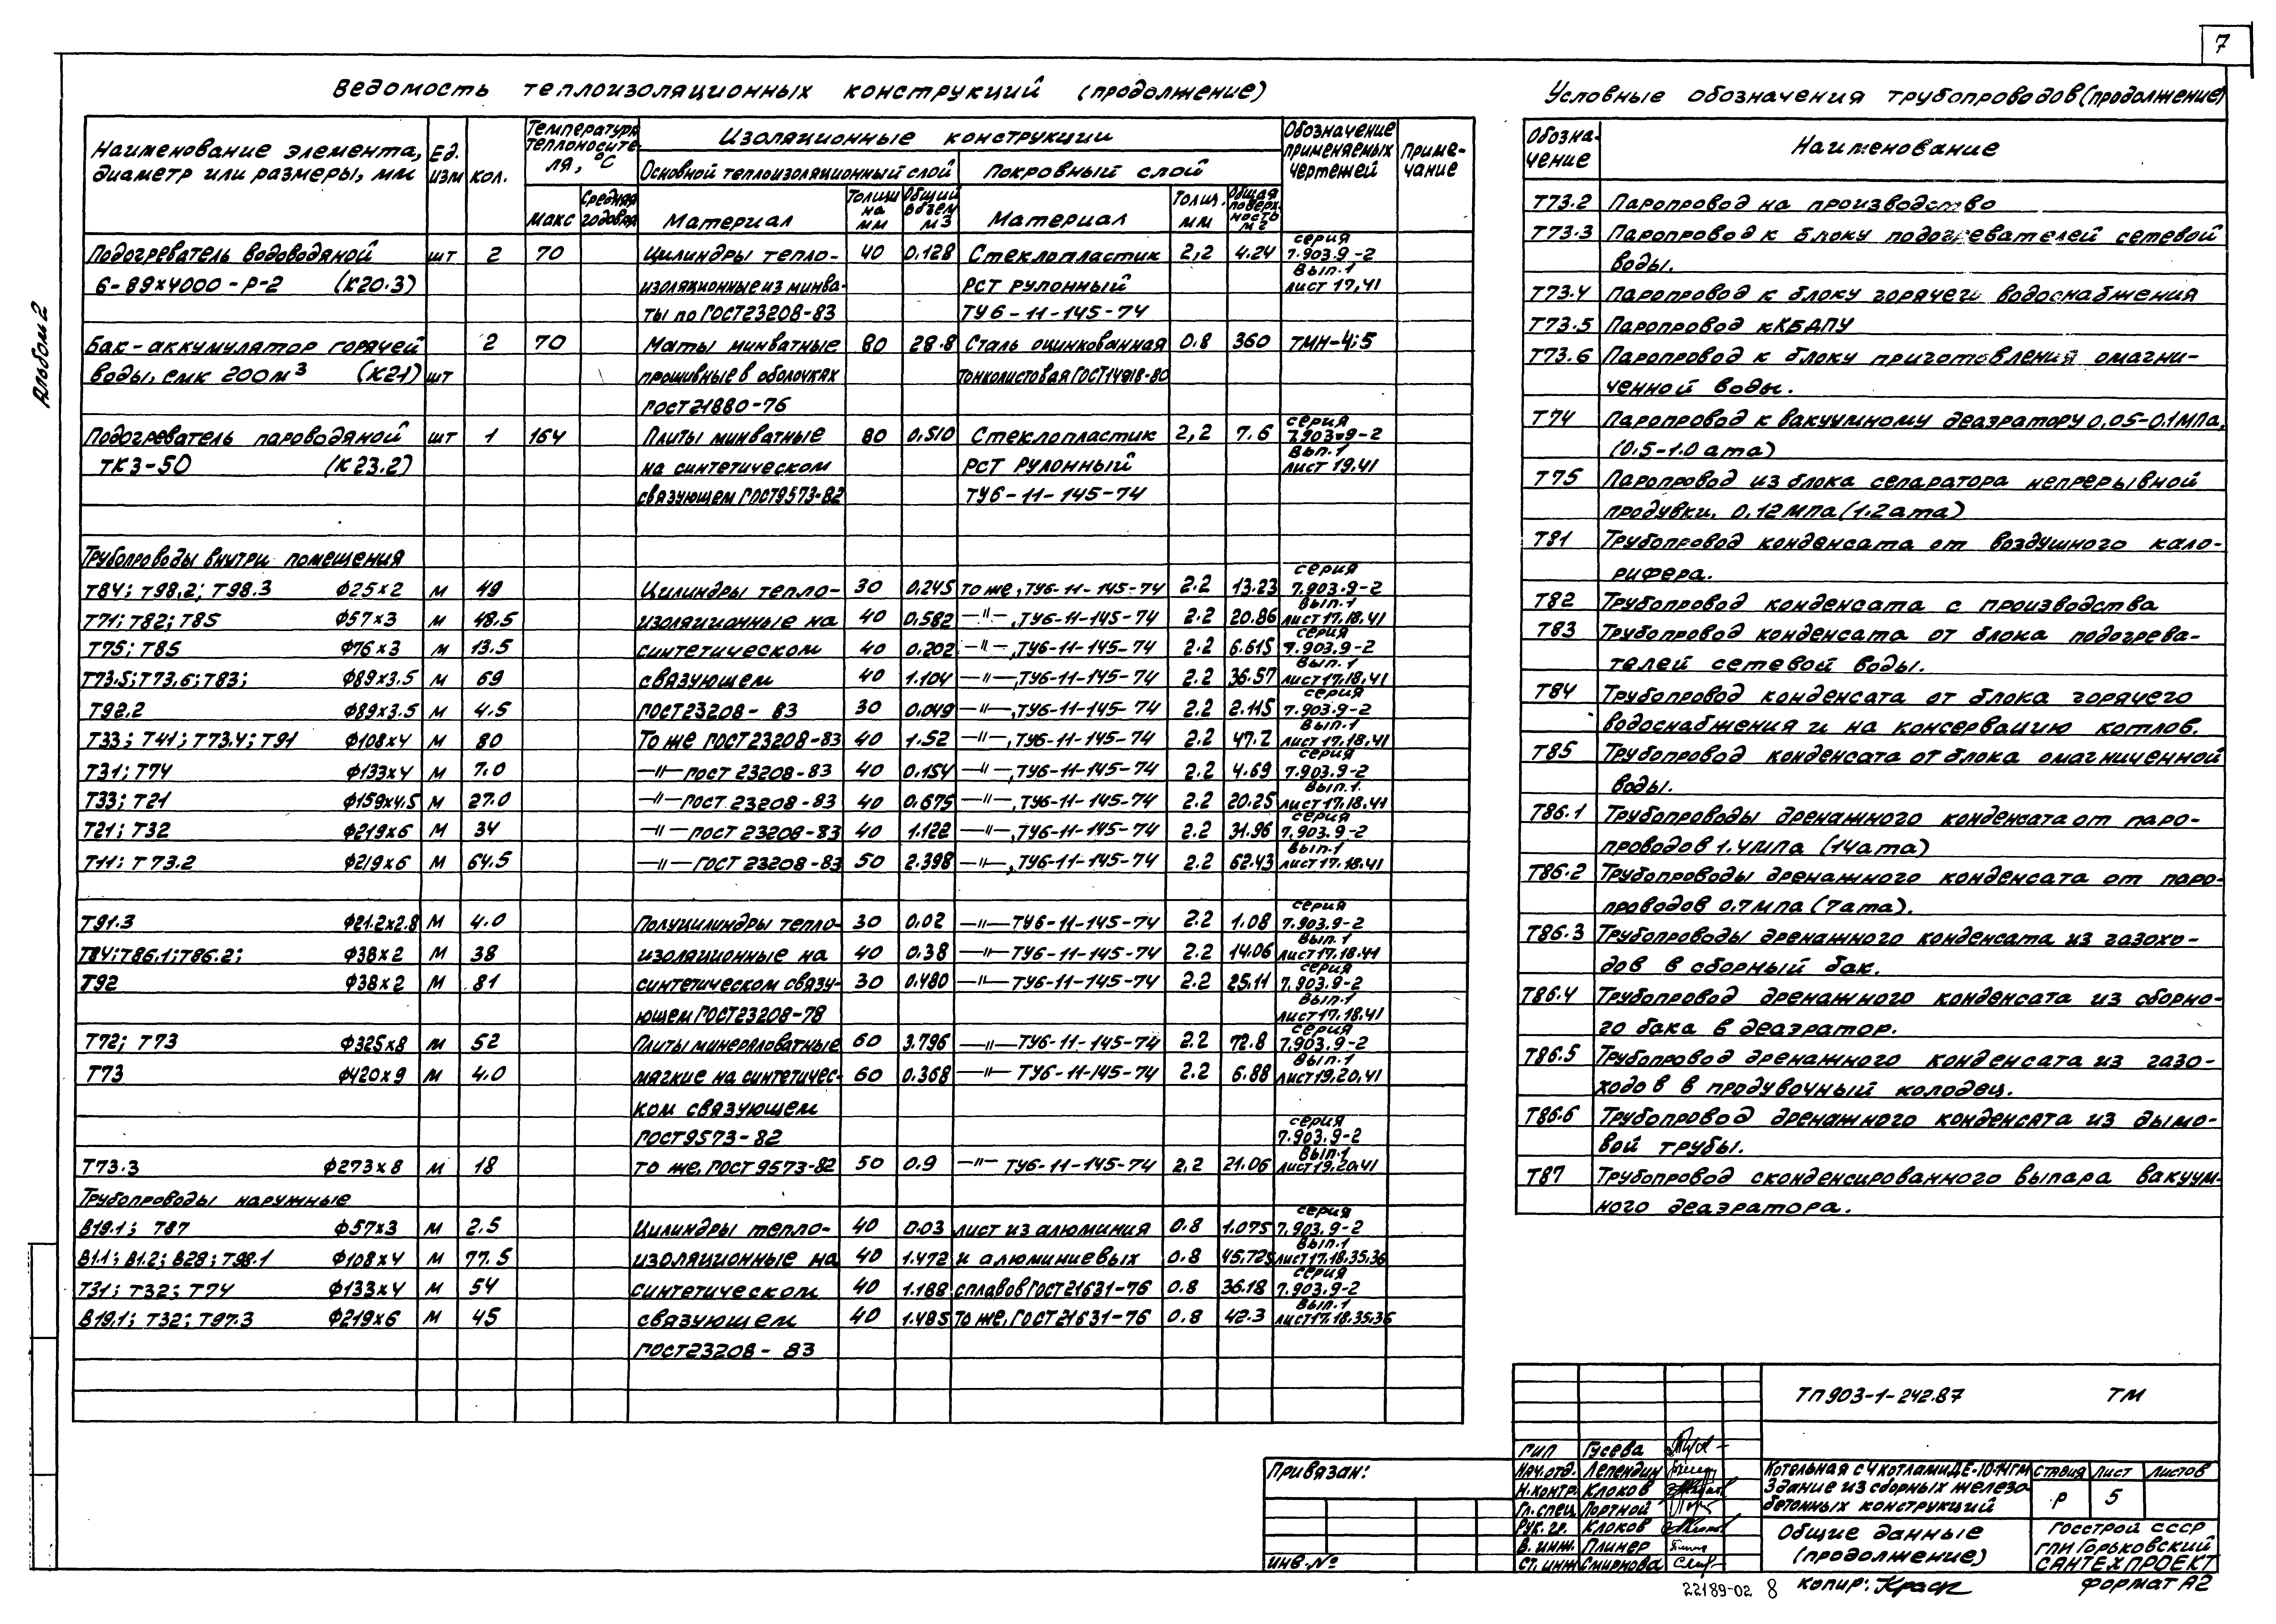 7
Альбом 2
Ведомость теплоизоляционных конструкций (продолжение)
Наименование элемента, диаметр или размеры, мм | Ед. изм | Кол. | Температура теплоносителя, °С | Изоляционные конструкции | Обозначение применяемых чертежей | Примечание
Основной теплоизоляционный слой | Покровный слой
макс | Средняя годовая | Материал | Толщина мм | Общий объем м3 | Материал | Толщ. мм | Общая поверхность м2
Подогреватель водоводяной шт 2 70 Цилиндры тепло- 40 0.128 Стеклопластик 2,2 4.24 серия 7.903.9-2
6-89х4000-Р-2 (К20.3) изоляционные из минва- РСТ рулонный Вып.1 лист 17,41
ты по ГОСТ 23208-83 ТУ6-11-145-74
Бак-аккумулятор горячей 2 70 Маты минватные 80 28.8 Сталь оцинкованная 0.8 360 ТМН-4;5
воды, емк 200м³ (К21) шт прошивные в оболочках тонколистовая ГОСТ 14918-80
ГОСТ 21880-76
Подогреватель пароводяной шт 1 164 Плиты минватные 80 0.510 Стеклопластик 2,2 7.6 серия 7.903.9-2
ТКЗ-50 (К23.2) на синтетическом РСТ рулонный Вып.1 лист 19,41
связующем ГОСТ 9573-82 ТУ6-11-145-74
Трубопроводы внутри помещения
Т84; Т98.2; Т98.3 ф25х2 м 49 Цилиндры тепло- 30 0.245 То же, ТУ6-11-145-74 2.2 13.23 серия 7.903.9-2
Т71; Т82; Т85 ф57х3 м 48.5 изоляционные на 40 0.582 —"—, ТУ6-11-145-74 2.2 20.86 Вып.1 лист 17,18,41
Т75; Т85 ф76х3 м 13.5 синтетическом 40 0.202 —"—, ТУ6-11-145-74 2.2 6.615 серия 7.903.9-2
Т73.5; Т73.6; Т83; ф89х3.5 м 69 связующем 40 1.104 —"—, ТУ6-11-145-74 2.2 36.57 Вып.1 лист 17,18,41
Т92.2 ф89х3.5 м 4.5 ГОСТ 23208-83 30 0.049 —"—, ТУ6-11-145-74 2.2 2.115 серия 7.903.9-2
Т33; Т41; Т73.4; Т91 ф108х4 м 80 То же ГОСТ 23208-83 40 1.52 —"—, ТУ6-11-145-74 2.2 47.2 Вып.1 лист 17,18,41
Т31; Т74 ф133х4 м 7.0 —"— ГОСТ 23208-83 40 0.154 —"—, ТУ6-11-145-74 2.2 4.69 серия 7.903.9-2
Т33; Т21 ф159х4.5 м 27.0 —"— ГОСТ 23208-83 40 0.675 —"—, ТУ6-11-145-74 2.2 20.25 Вып.1. лист 17,18,41
Т21; Т32 ф219х6 м 34 —"— ГОСТ 23208-83 40 1.122 —"—, ТУ6-11-145-74 2.2 31.96 серия 7.903.9-2
Т11; Т73.2 ф219х6 м 64.5 —"— ГОСТ 23208-83 50 2.398 —"—, ТУ6-11-145-74 2.2 62.43 Вып.1 лист 17,18,41
Т91.3 ф21.2х2.8 м 4.0 Полуцилиндры тепло- 30 0.02 —"— ТУ6-11-145-74 2.2 1.08 серия 7.903.9-2
Т84; Т86.1; Т86.2; ф38х2 м 38 изоляционные на 40 0.38 —"— ТУ6-11-145-74 2.2 14.06 Вып.1 лист 17,18,41
Т92 ф38х2 м 81 синтетическом связу- 30 0.480 —"— ТУ6-11-145-74 2.2 25.11 серия 7.903.9-2
ющем ГОСТ 23208-78 Вып.1 лист 17,18,41
Т72; Т73 ф325х8 м 52 Плиты минераловатные 60 3.796 —"— ТУ6-11-145-74 2.2 72.8 серия 7.903.9-2
Т73 ф420х9 м 4.0 мягкие на синтетичес- 60 0.368 —"— ТУ6-11-145-74 2.2 6.88 Вып.1 лист 19,20,41
ком связующем
ГОСТ 9573-82 серия 7.903.9-2
Т73.3 ф273х8 м 18 То же, ГОСТ 9573-82 50 0.9 —"— ТУ6-11-145-74 2,2 21.06 Вып.1 лист 19,20,41
Трубопроводы наружные
В19.1; Т87 ф57х3 м 2.5 Цилиндры тепло- 40 0.03 лист из алюминия 0.8 1.075 серия 7.903.9-2
В1.1; В1.2; В28; Т98.1 ф108х4 м 77.5 изоляционные на 40 1.472 и алюминиевых 0.8 45.725 Вып.1 лист 17,18,35,36
Т31; Т32; Т74 ф133х4 м 54 синтетическом 40 1.188 сплавов ГОСТ 21631-76 0.8 36.18 серия 7.903.9-2
В19.1; Т32; Т97.3 ф219х6 м 45 связующем 40 1.485 То же, ГОСТ 21631-76 0.8 42.3 Вып.1 лист 17,18,35,36
ГОСТ 23208-83
Условные обозначения трубопроводов (продолжение)
Обозна-чение | Наименование
Т73.2 Паропровод на производство
Т73.3 Паропровод к блоку подогревателей сетевой
воды.
Т73.4 Паропровод к блоку горячего водоснабжения
Т73.5 Паропровод к КБДПУ
Т73.6 Паропровод к блоку приготовления омагни-
ченной воды.
Т74 Паропровод к вакуумному деаэратору 0,05-0.1МПа,
(0.5-1.0 ата)
Т75 Паропровод из блока сепаратора непрерывной
продувки, 0.12МПа (1.2ата)
Т81 Трубопровод конденсата от воздушного кало-
рифера.
Т82 Трубопровод конденсата с производства
Т83 Трубопровод конденсата от блока подогрева-
телей сетевой воды.
Т84 Трубопровод конденсата от блока горячего
водоснабжения и на консервацию котлов.
Т85 Трубопровод конденсата от блока омагниченной
воды.
Т86.1 Трубопроводы дренажного конденсата от паро-
проводов 1.4МПа (14ата)
Т86.2 Трубопроводы дренажного конденсата от паро-
проводов 0.7МПа (7ата).
Т86.3 Трубопроводы дренажного конденсата из газохо-
дов в сборный бак.
Т86.4 Трубопровод дренажного конденсата из сборно-
го бака в деаэратор.
Т86.5 Трубопровод дренажного конденсата из газо-
ходов в продувочный колодец.
Т86.6 Трубопровод дренажного конденсата из дымо-
вой трубы.
Т87 Трубопровод сконденсированного выпара вакуум-
ного деаэратора.
ТП 903-1-242.87 ТМ
Привязан:
инв. №
ГИП Гусева
Нач.отд. Лепендин
Н.контр. Клоков
Гл.спец. Портной
Рук.гр. Клоков
В.инж. Плинер
Ст.инж Смирнова
Котельная с 4 котлами ДЕ-10-14ГМ
Здание из сборных железо-
бетонных конструкций
Стадия Лист Листов
Р 5
Общие данные
(продолжение)
Госстрой СССР
ГПИ Горьковский
САНТЕХПРОЕКТ
22189-02 8 Копир: Красн Формат А2